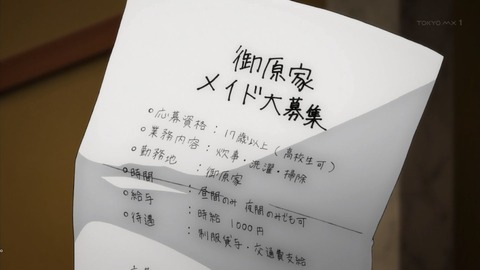 TOKYO MX 1
御原家
メイド大募集
○応募資格 : 17歳以上 (高校生可)
○業務内容 : 炊事・洗濯・掃除
○勤務地 : 御原家
○時間 : 昼間のみ 夜間のみでも可
○給与 : 時給 1000円
○待遇 : 制服貸与・交通費支給